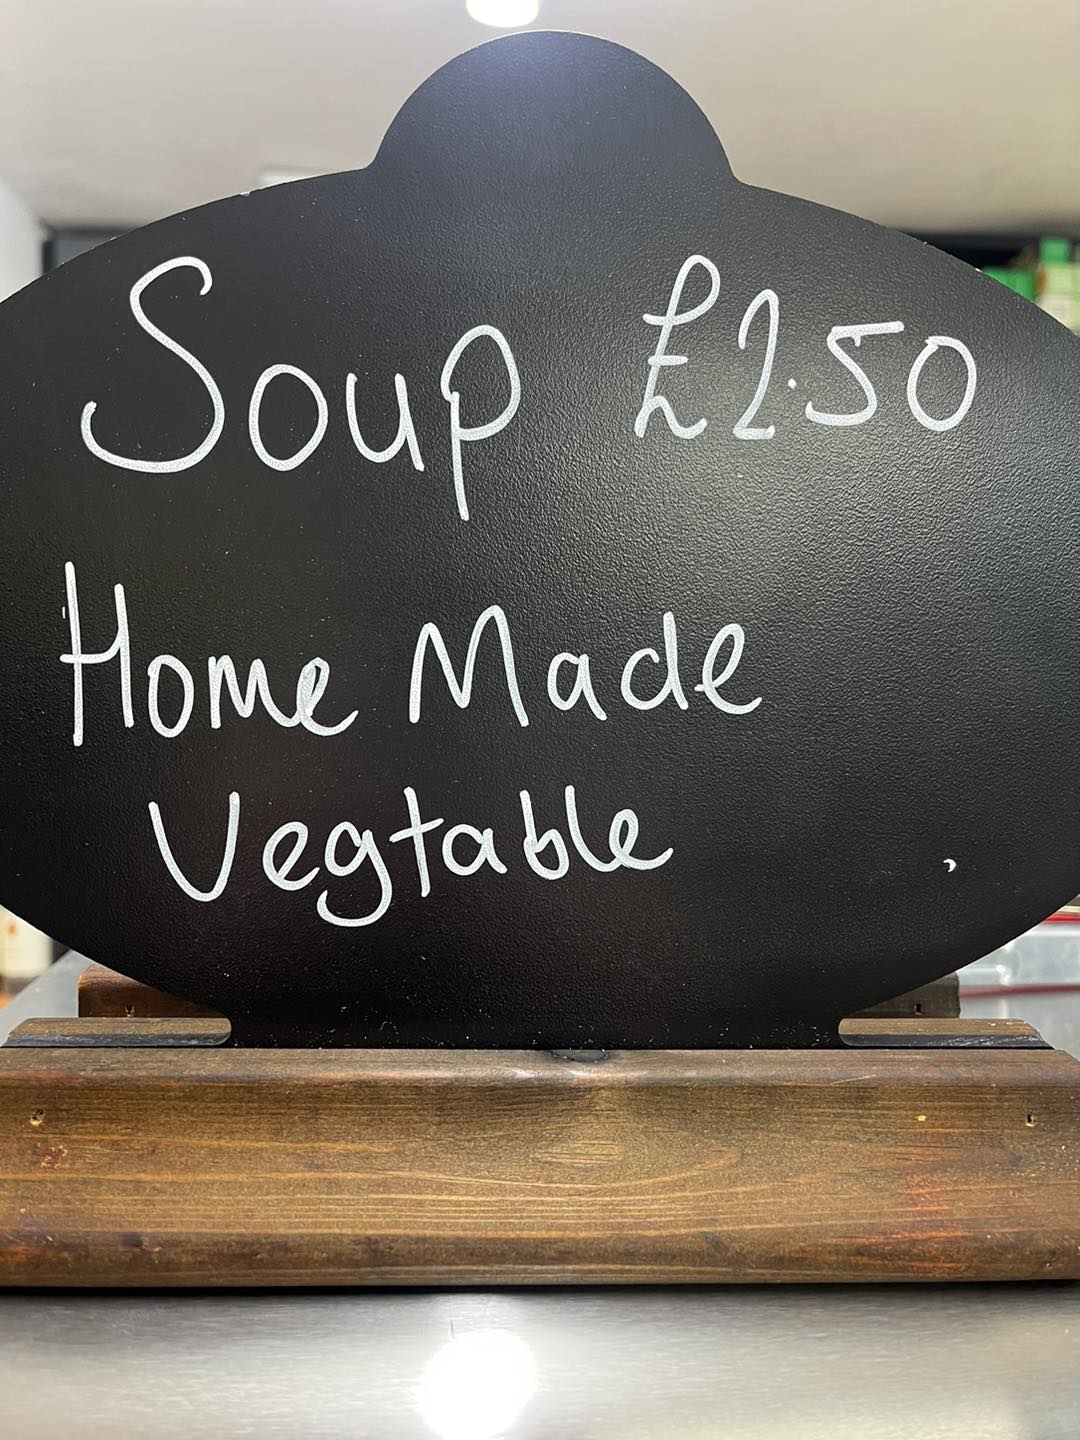 Soup £2.50
Home Made
Vegtable